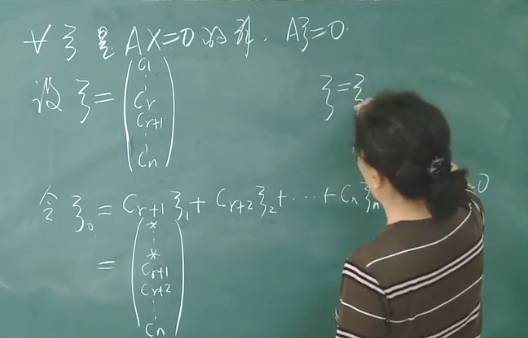 ∀ ξ 是 AX=0 的解, Aξ=0.
设 ξ = (c₁ ⋮ cᵣ cᵣ₊₁ ⋮ cₙ)
ξ=ξ
令 ξ₀ = Cᵣ₊₁ξ₁ + Cᵣ₊₂ξ₂ + ⋯ + Cₙξₙ =0
= (* ⋮ * Cᵣ₊₁ Cᵣ₊₂ ⋮ Cₙ)